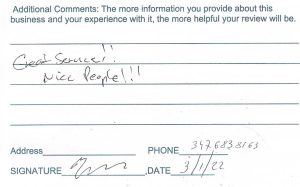 Additional Comments: The more information you provide about this
business and your experience with it, the more helpful your review will be.
Great Service!!
Nice People!!
Address PHONE 347 683 8163
SIGNATURE DATE 3/1/22